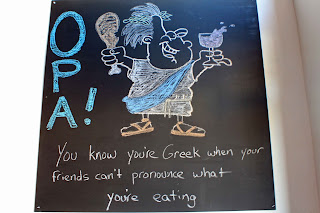 OPA!
You know you're Greek when your
friends can't pronounce what
you're eating